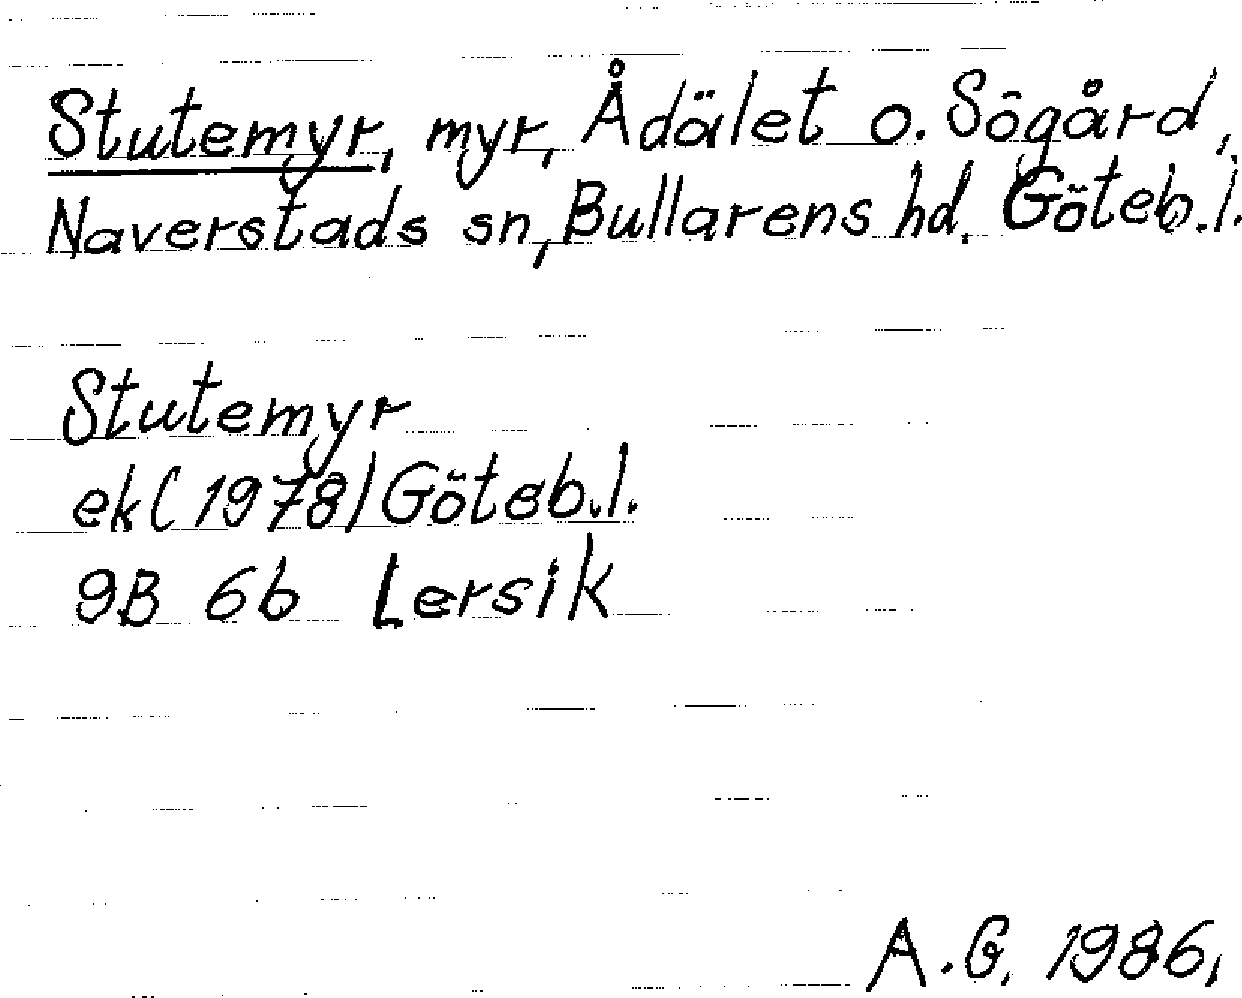 Stutemyr, myr, Ådälet o. Sögård,
Naverstads sn, Bullarens hd. Göteb.l.
Stutemyr
ek (1978) Göteb.l.
9B 6b Lersik
A.G. 1986,